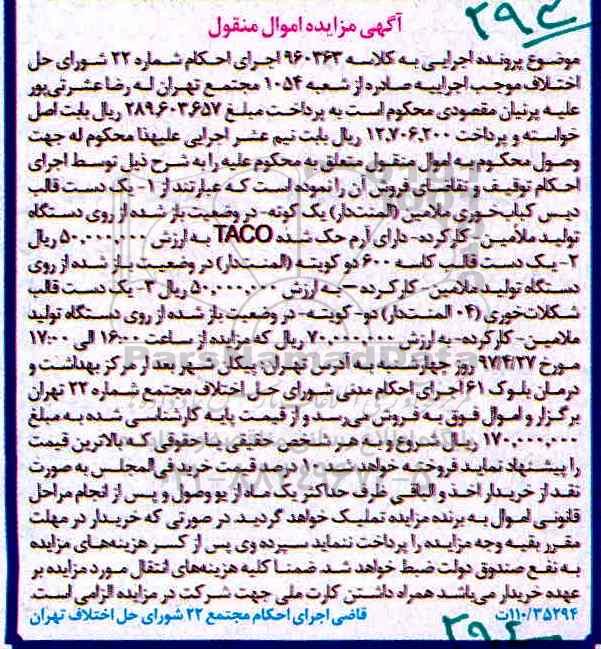 ۲۹۴
آگهی مزایده اموال منقول
موضوع پرونده اجرایی به کلاسه ۹۶۰۳۶۳ اجرای احکام شماره ۲۲ شورای حل
اختلاف موجب اجراییه صادره از شعبه ۱۰۵۴ مجتمع تهران له رضا عشرتی‌پور
علیه پرنیان مقصودی محکوم است به پرداخت مبلغ ۲۸۹,۶۰۳,۶۵۷ ریال بابت اصل
خواسته و پرداخت ۱۲,۷۰۶,۲۰۰ ریال بابت نیم عشر اجرایی علیهذا محکوم له جهت
وصول محکوم به اموال منقول متعلق به محکوم علیه را به شرح ذیل توسط اجرای
احکام توقیف و تقاضای فروش آن را نموده است که عبارتند از ۱- یک دست قالب
دیس کباب‌خوری ملامین (المنت‌دار) یک کوته- در وضعیت باز شده از روی دستگاه
تولید ملامین - کارکرده- دارای آرم حک شده TACO به ارزش ۵۰,۰۰۰,۰۰۰ ریال
۲- یک دست قالب کاسه ۶۰۰ دو کویته (المنت‌دار) در وضعیت باز شده از روی
دستگاه تولید ملامین - کارکرده - به ارزش ۵۰,۰۰۰,۰۰۰ ریال ۳- یک دست قالب
شکلات‌خوری (۰۴ المنت‌دار) دو- کویته- در وضعیت باز شده از روی دستگاه تولید
ملامین- کارکرده- به ارزش ۷۰,۰۰۰,۰۰۰ ریال که مزایده از ساعت ۱۶:۰۰ الی ۱۷:۰۰
مورخ ۹۷/۴/۲۷ روز چهارشنبه به آدرس تهران: پیکان شهر بعد از مرکز بهداشت و
درمان بلوک ۶۱ اجرای احکام مدنی شورای حل اختلاف مجتمع شماره ۲۲ تهران
برگزار و اموال فوق به فروش می‌رسد و از قیمت پایه کارشناسی شده به مبلغ
۱۷۰,۰۰۰,۰۰۰ ریال شروع و به هر شخص حقیقی یا حقوقی که بالاترین قیمت
را پیشنهاد نماید فروخته خواهد شد ۱۰ درصد قیمت خرید فی‌المجلس به صورت
نقد از خریدار اخذ و الباقی ظرف حداکثر یک ماه از یو وصول و پس از انجام مراحل
قانونی اموال به برنده مزایده تملیک خواهد گردید. در صورتی که خریدار در مهلت
مقرر بقیه وجه مزایده را پرداخت ننماید سپرده وی پس از کسر هزینه‌های مزایده
به نفع صندوق دولت ضبط خواهد شد. ضمنا کلیه هزینه‌های انتقال مورد مزایده بر
عهده خریدار می‌باشد همراه داشتن کارت ملی جهت شرکت در مزایده الزامی است.
۱۱۰/۳۵۲۹۴ت قاضی اجرای احکام مجتمع ۲۲ شورای حل اختلاف تهران
ParsNamadData